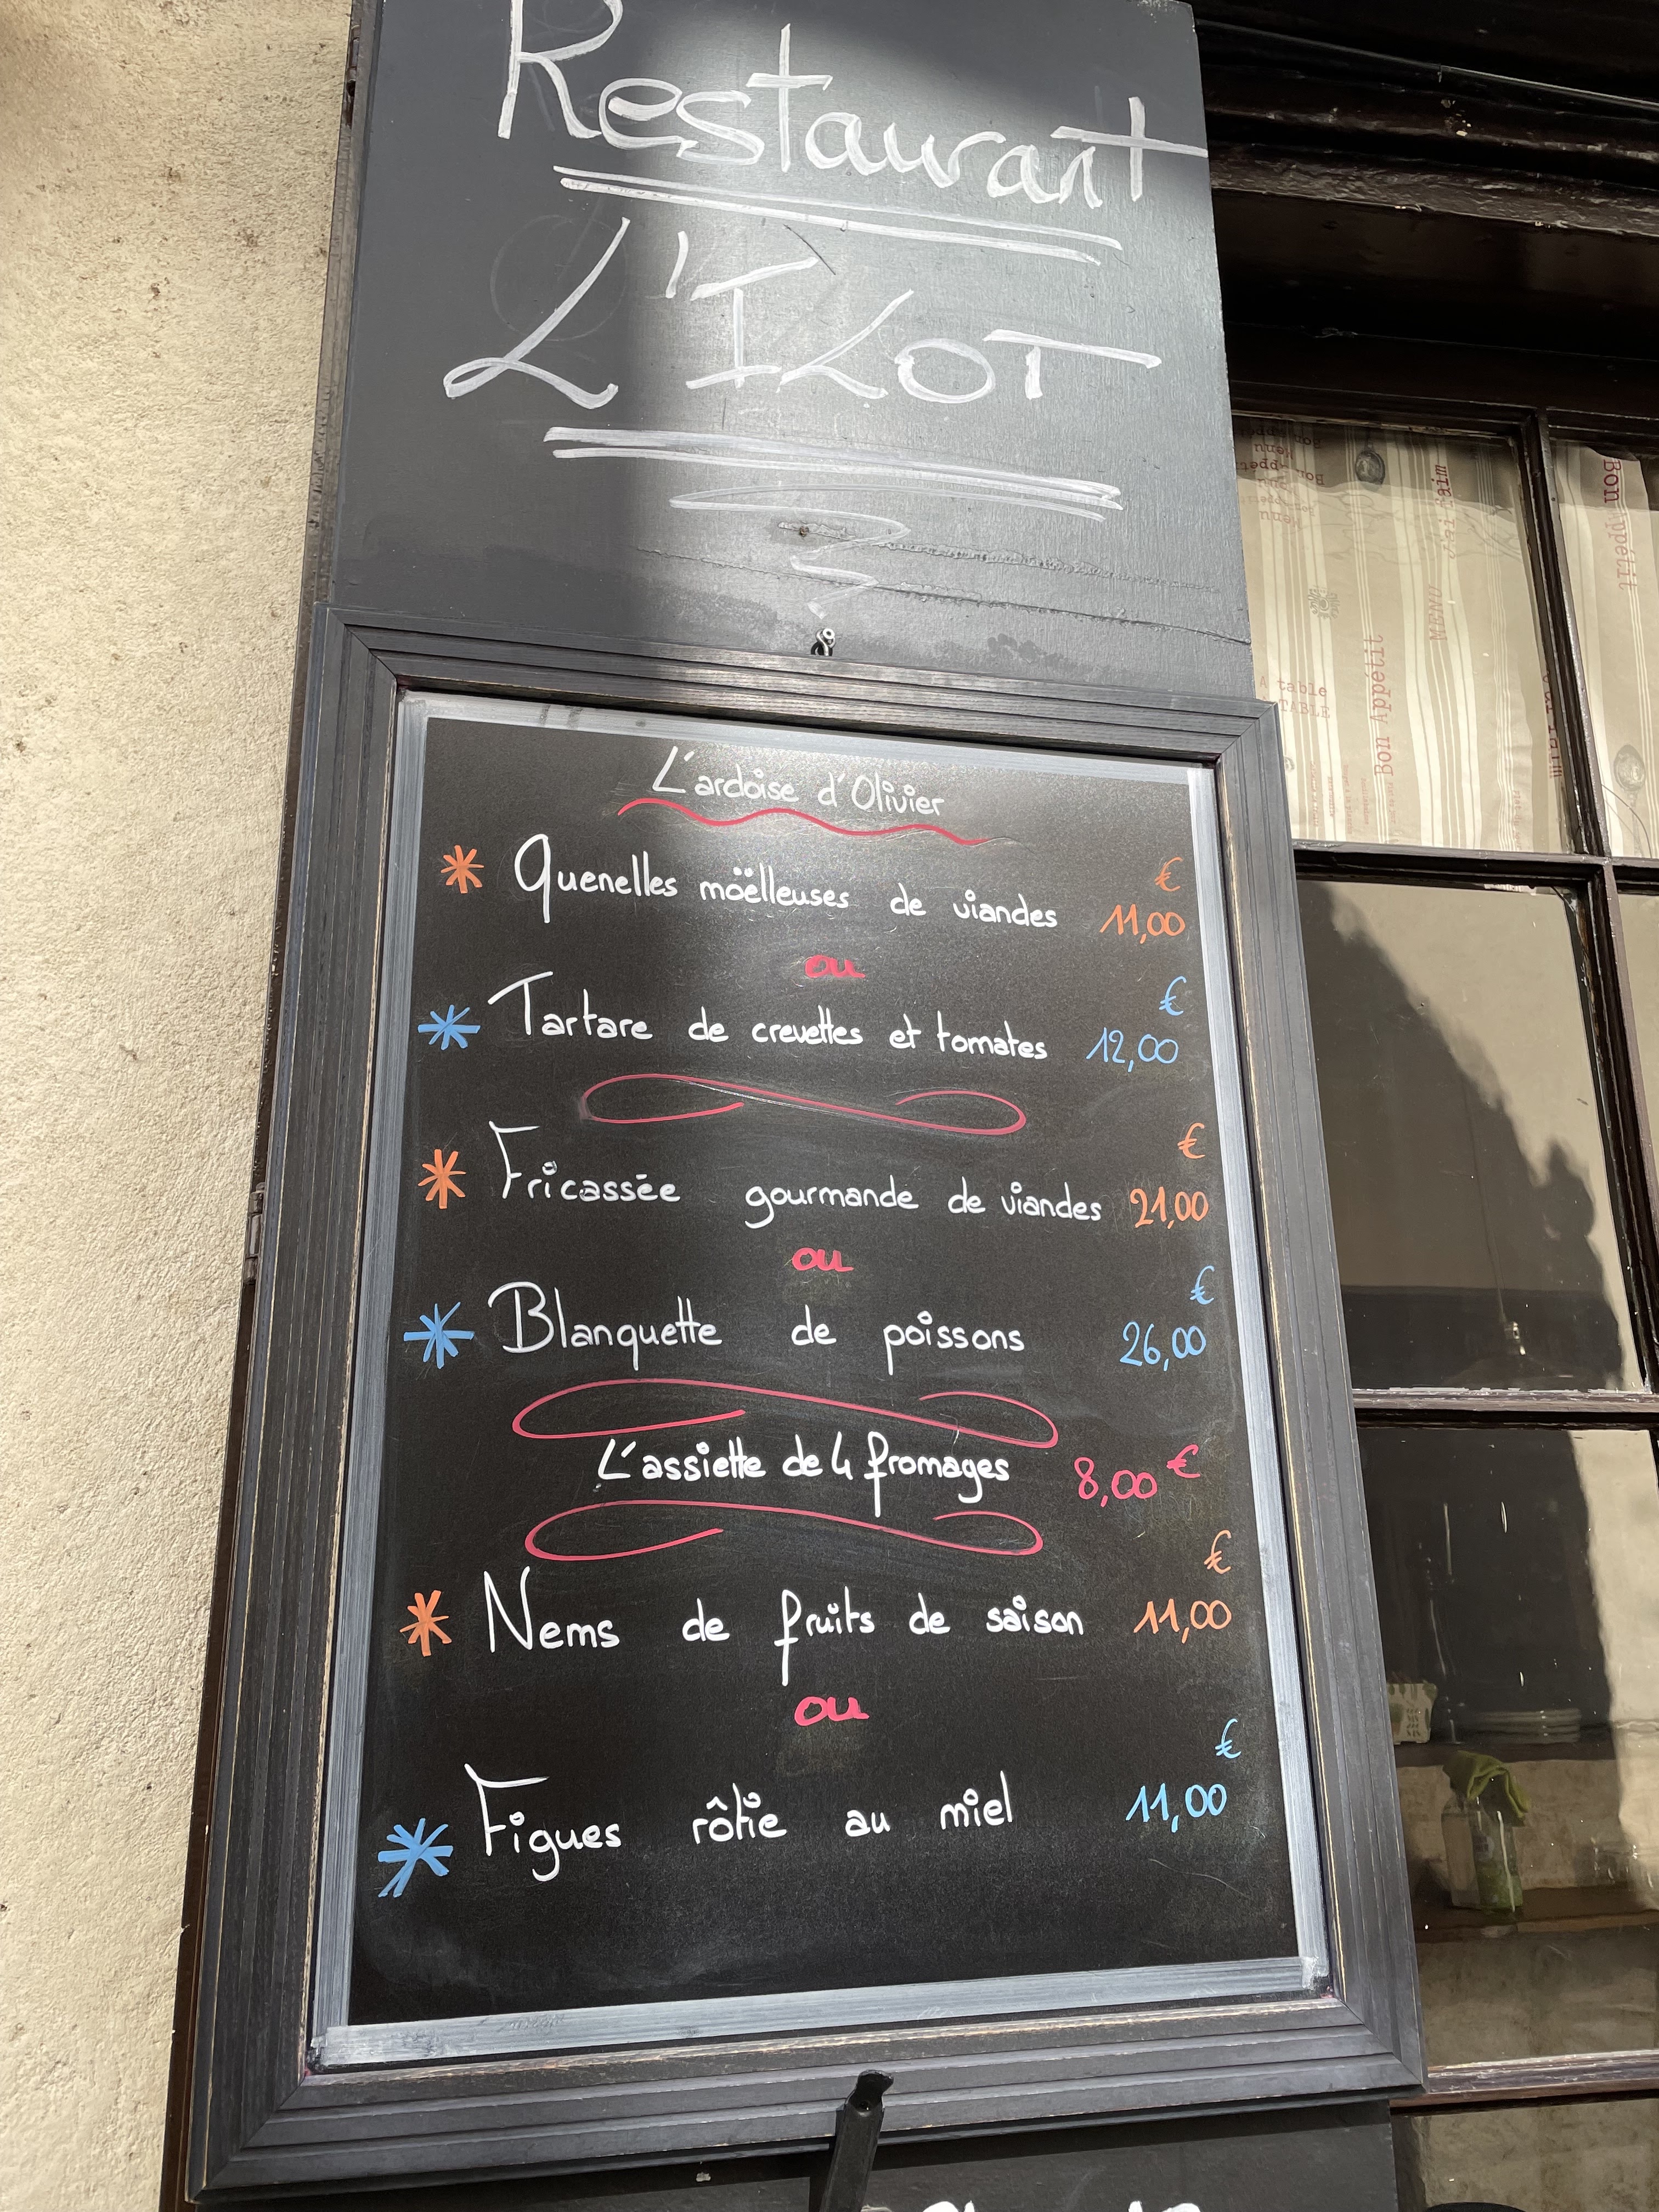 Restaurant
L'ILOT
L'ardoise d'Olivier
Quenelles möelleuses de viandes 11,00 €
ou
Tartare de crevettes et tomates 12,00 €
Fricassée gourmande de viandes 21,00 €
ou
Blanquette de poissons 26,00 €
L'assiette de 4 fromages 8,00 €
Nems de fruits de saison 11,00 €
ou
Figues rôtie au miel 11,00 €
Menu
Bon Appétit
Menu
J'ai faim
MENU
Bon Appétit
A table
A TABLE
Bon Appétit